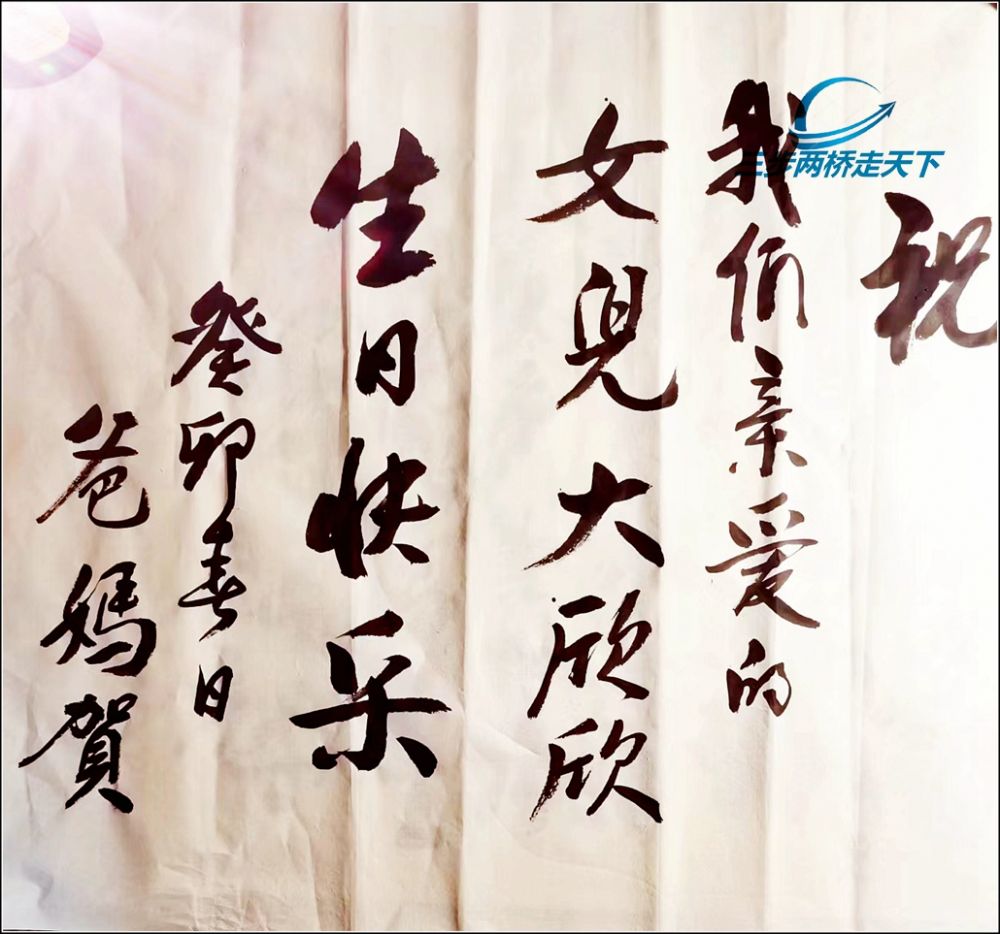 三步两桥走天下
祝
我们亲爱的
女兒大欣欣
生日快乐
癸卯春日
爸媽賀